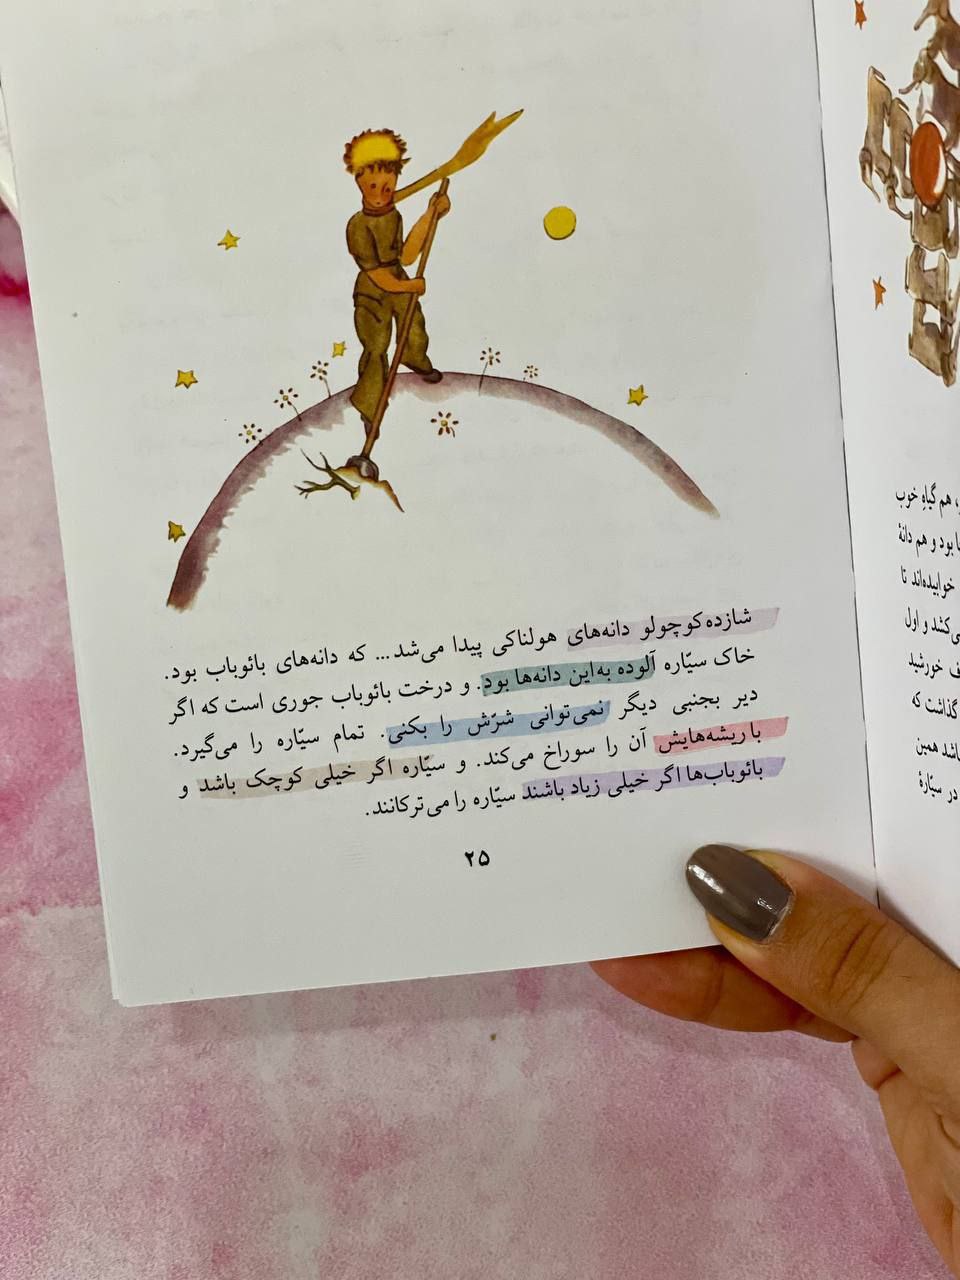 شازده‌کوچولو دانه‌های هولناکی پیدا می‌شد... که دانه‌های بائوباب بود.
خاک سیّاره آلوده به‌این دانه‌ها بود. و درخت بائوباب جوری است که اگر
دیر بجنبی دیگر نمی‌توانی شرّش را بکنی. تمام سیّاره را می‌گیرد.
با ریشه‌هایش آن را سوراخ می‌کند. و سیّاره اگر خیلی کوچک باشد و
بائوباب‌ها اگر خیلی زیاد باشند سیّاره را می‌ترکانند.
۲۵
، هم گیاهِ خوب
ا بود و هم دانهٔ
خوابیده‌اند تا
ی‌کشد و اول
ف خورشید
گذاشت که
باشد همین
در سیّارهٔ